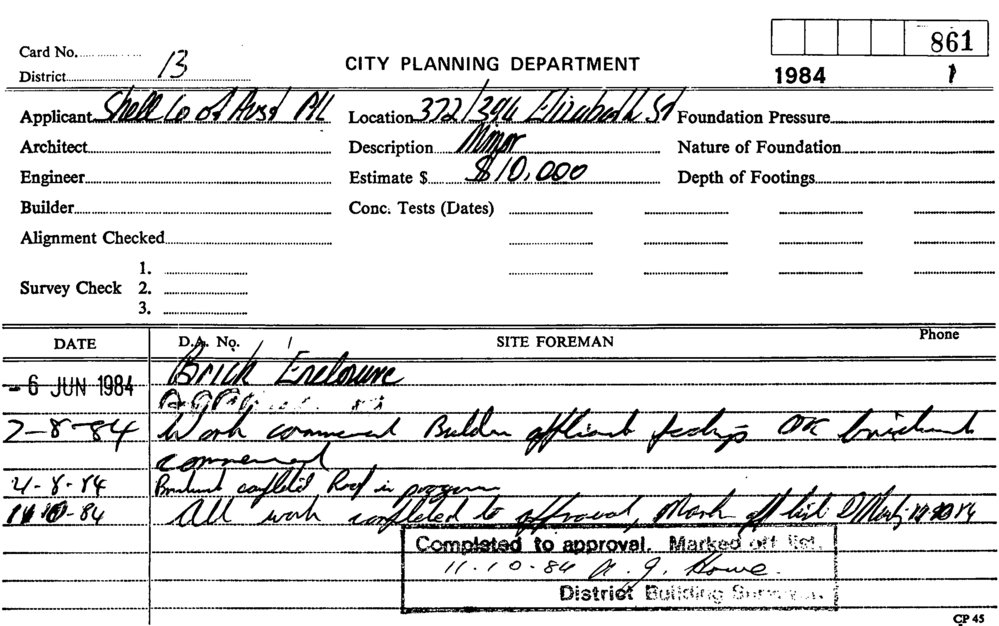 861
Card No.
District 13
CITY PLANNING DEPARTMENT
1984 1
Applicant Shell Co of Aust P/L Location 372/394 Elizabeth St Foundation Pressure
Architect Description Minor Nature of Foundation
Engineer Estimate $ $10,000 Depth of Footings
Builder Conc. Tests (Dates)
Alignment Checked
1.
Survey Check 2.
3.
DATE D.A. No. SITE FOREMAN Phone
Brick Enclosure
- 6 JUN 1984
2-8-84 Work commenced Builder footings OK brickwork
commenced
-8-84 Brickwork completed Roof in progress
-84 All work completed to approval, Mark off list
Completed to approval. Marked off list.
11-10-84 Howe
District Building Surveyor.
CP 45